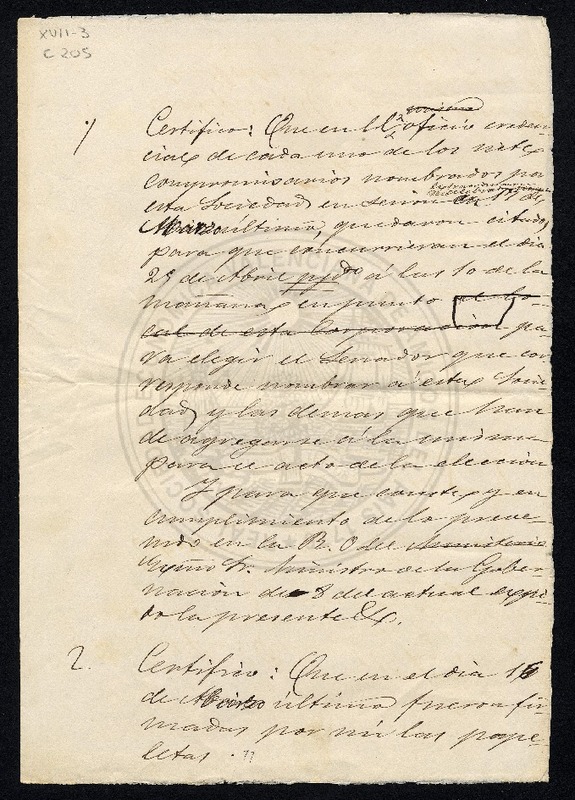 XVII-3
C 205
1/ Certifico: Que en el oficio creden-
ciales de cada uno de los siete
compromisarios nombrados por
esta Sociedad en sesion 
Marzo último, quedaron citados
para que concurrieran el dia
25 de Abril ppdo á las 10 de la
mañana en punto al lo-
cal de esta Corporacion pa-
ra elegir el Senador que cor-
responde nombrar á esta Socie-
dad y las demas que han
de agregarse á la misma
para el acto de la eleccion
Y para que conste y en
cumplimiento de lo preve-
nido en la R. O del Ministerio
Exmo Sr. Ministro de la Gober-
nacion de 8 del actual espi-
do la presente &c.
2. Certifico: Que en el dia 16
de Marzo último fueron fir-
madas por mi las pape-
letas.